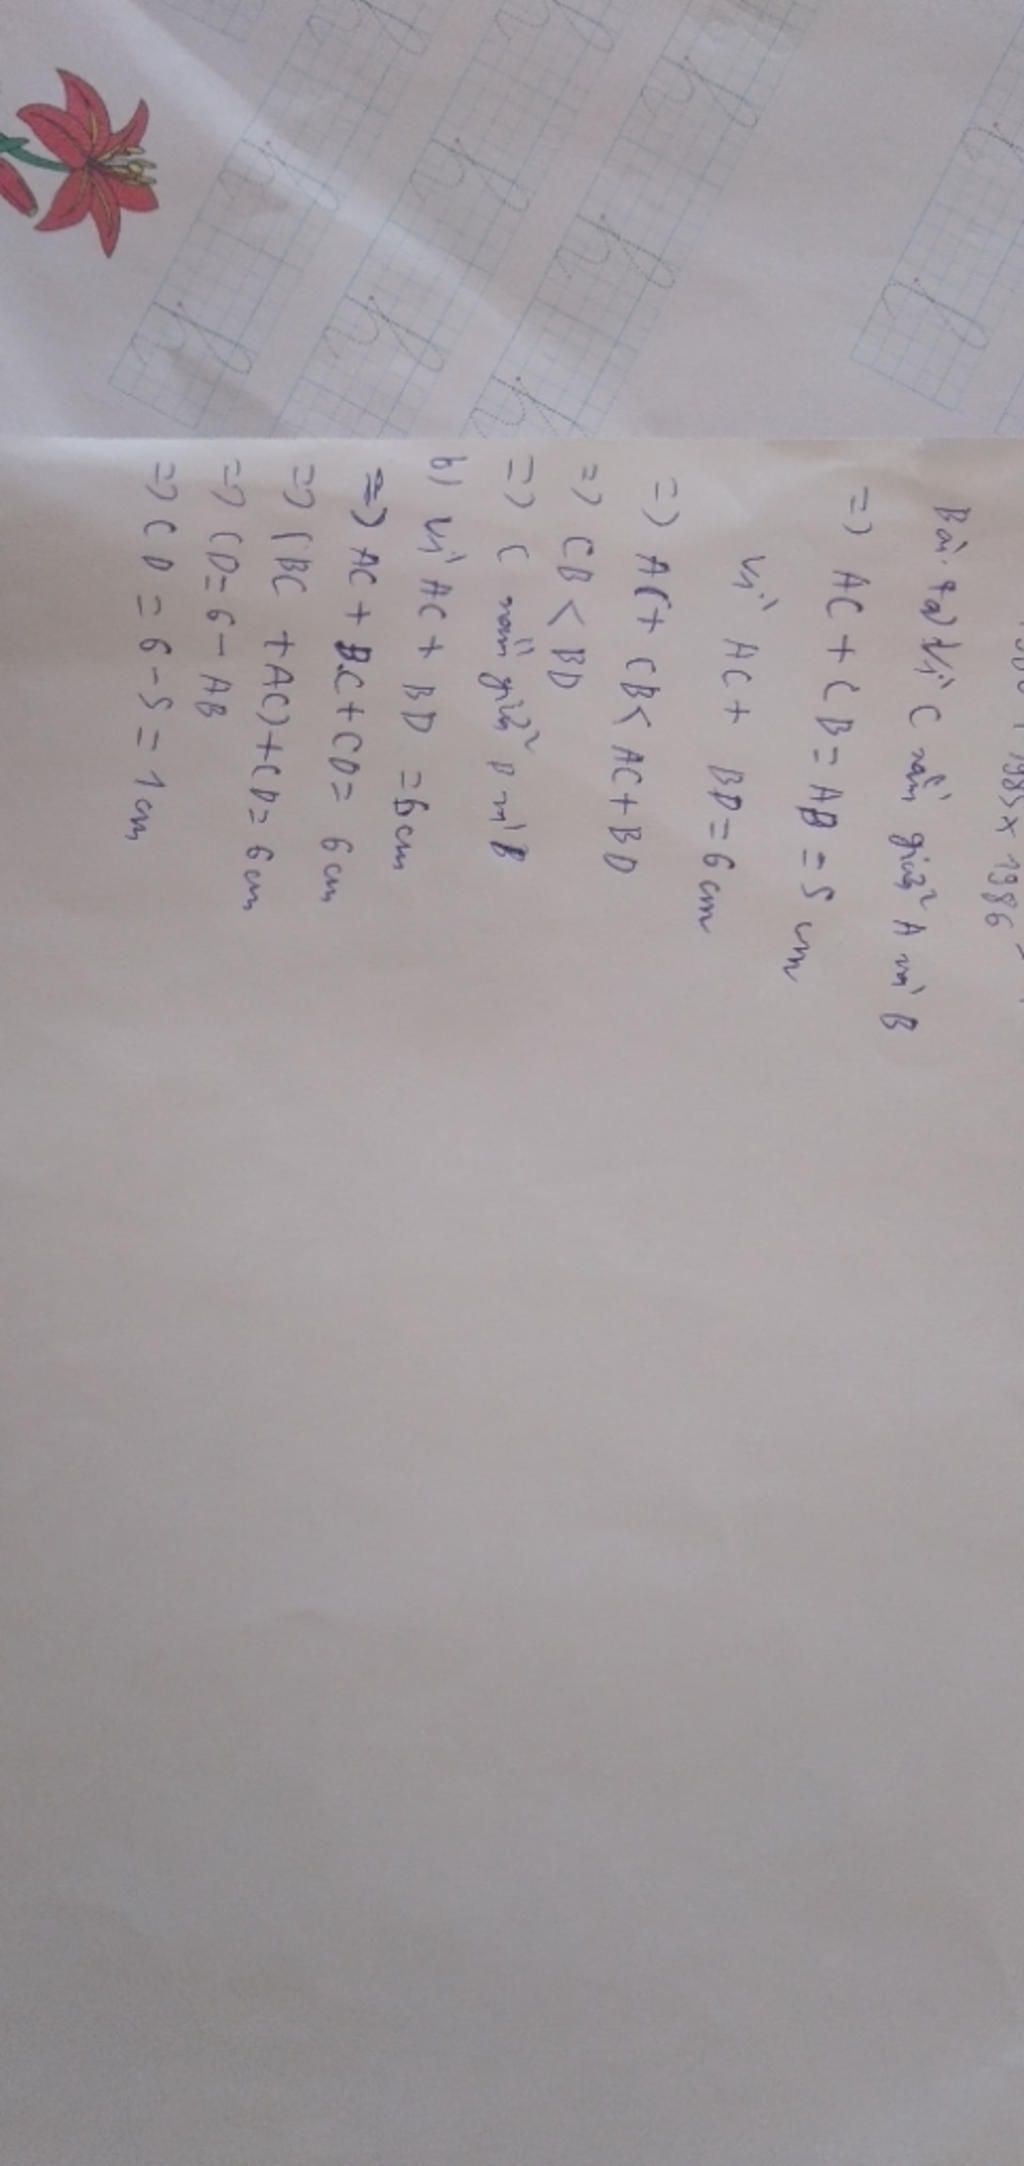 1985 x 1986
Bài 4 a) Vì C nằm giữa A và B
=> AC + CB = AB = 5 cm
Vì AC + BD = 6 cm
=> AC + CB < AC + BD
=> CB < BD
=> C nằm giữa D và B
b) Vì AC + BD = 6 cm
=> AC + BC + CD = 6 cm
=> (BC + AC) + CD = 6 cm
=> CD = 6 - AB
=> CD = 6 - 5 = 1 cm